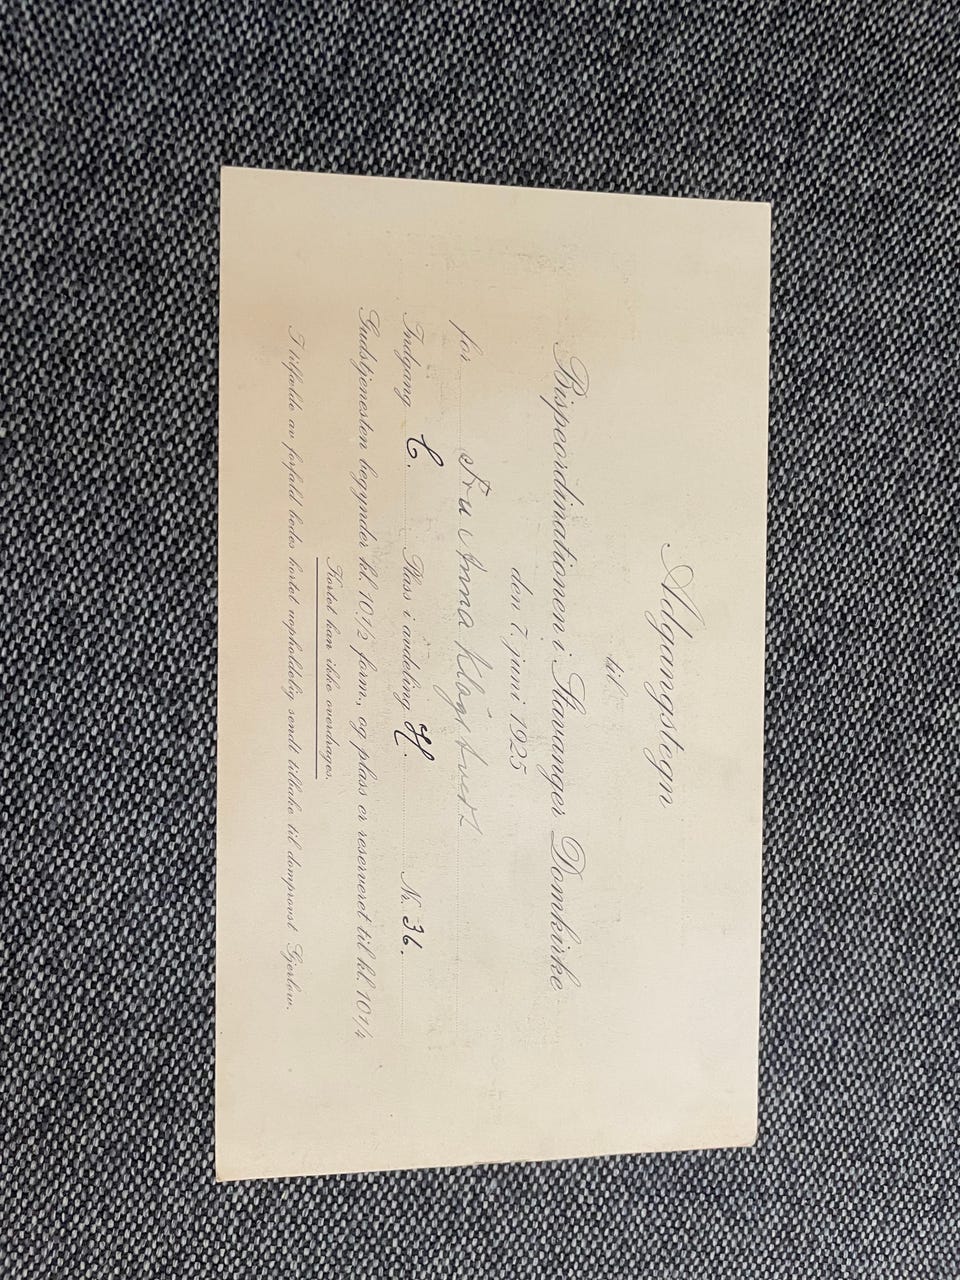 Adgangstegn
til
Bispeordinationen i Stavanger Domkirke
den 7. juni 1925
for Fru Anna
Indgang C. Plass i avdeling H. Nr. 36.
Gudstjenesten begynder kl. 10 1/2 form., og plass er reserveret til kl. 10 1/4
Kortet kan ikke overdrages.
I tilfælde av forfald bedes kortet uopholdelig sendt tilbake til domprovst Gjerløw.